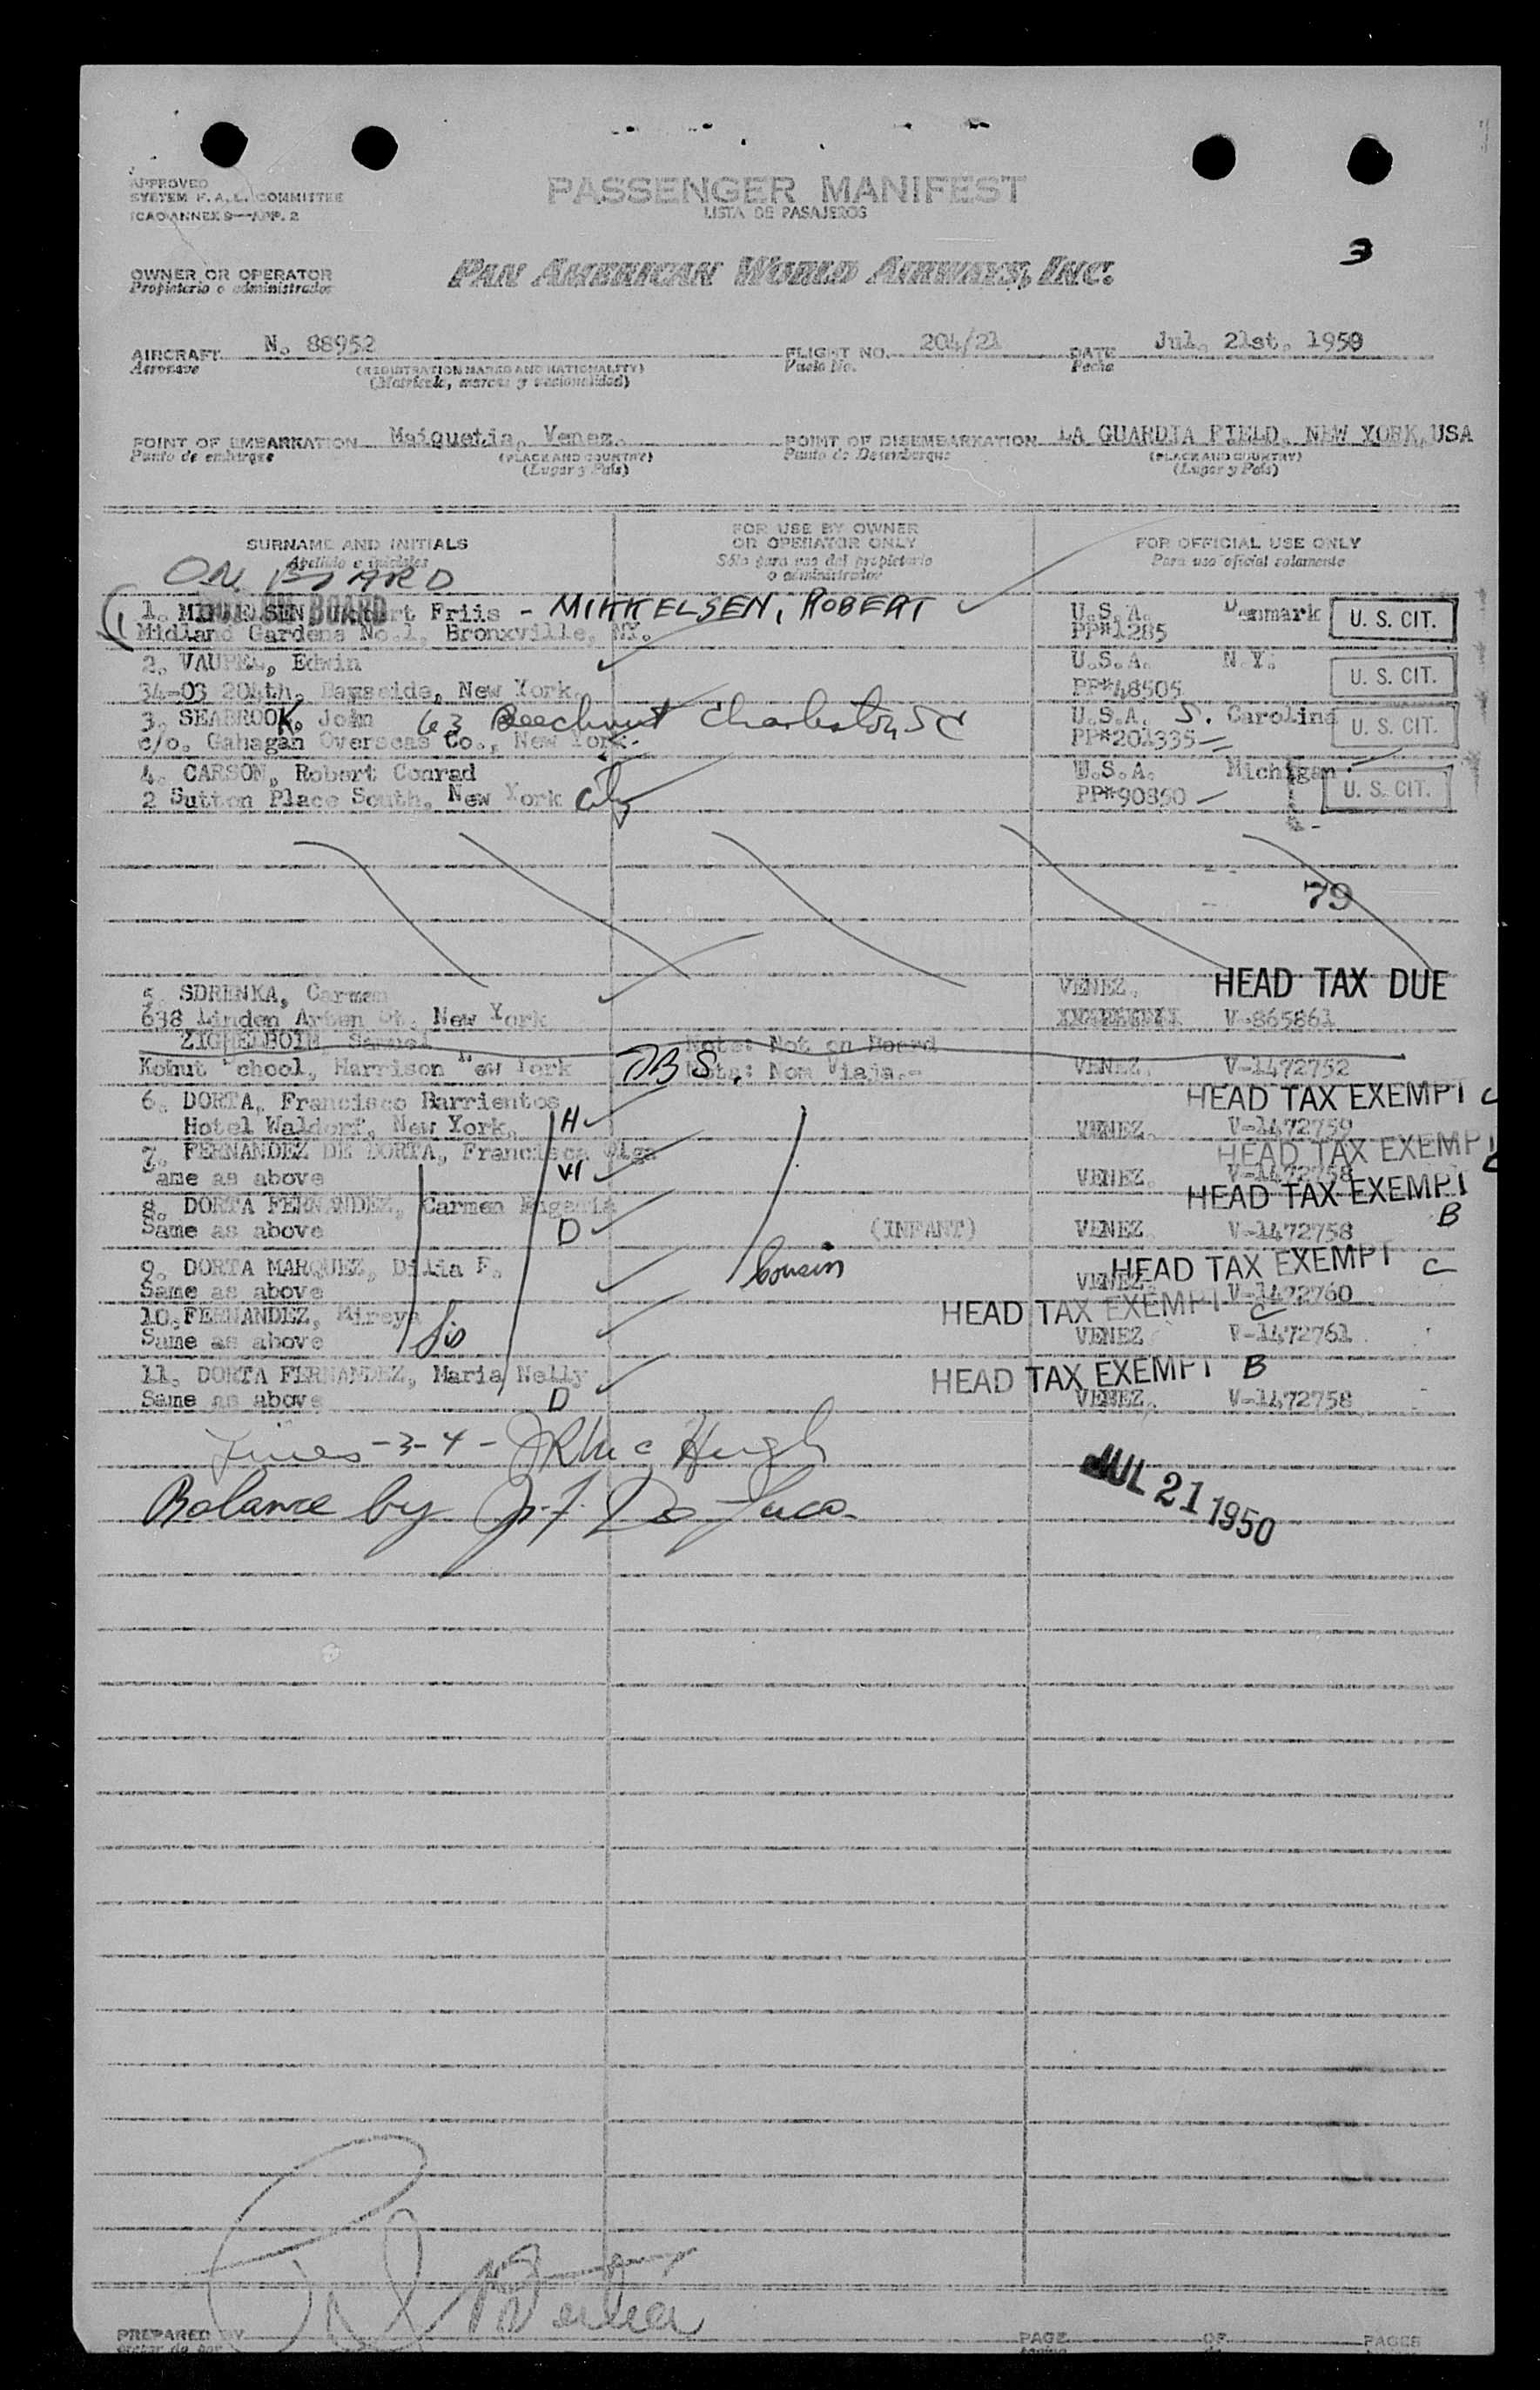 APPROVED
SYSTEM F.A.L. COMMITTEE
ICAO ANNEX 9—APP. 2
PASSENGER MANIFEST
LISTA DE PASAJEROS
3
OWNER OR OPERATOR
Propietario o administrador
PAN AMERICAN WORLD AIRWAYS, INC.
AIRCRAFT N. 88952 FLIGHT NO. 204/21 DATE Jul. 21st. 1950
Aeronave (REGISTRATION MARKS AND NATIONALITY) Vuelo No. Fecha
(Matrícula, marcas y nacionalidad)
POINT OF EMBARKATION Maiquetia, Venez. POINT OF DISEMBARKATION LA GUARDIA FIELD, NEW YORK, USA
Punto de embarque (PLACE AND COUNTRY) Punto de Desembarque (PLACE AND COUNTRY)
(Lugar y País) (Lugar y País)
SURNAME AND INITIALS FOR USE BY OWNER OR OPERATOR ONLY FOR OFFICIAL USE ONLY
Apellido e iniciales Sólo para uso del propietario o administrador Para uso oficial solamente
ON BOARD
1. MIKKELSEN, Robert Friis - MIKKELSEN, ROBERT U.S.A. Denmark U. S. CIT.
NOT ON BOARD
Midland Gardens No.1, Bronxville, NY. PP#1285
2. VAUPEL, Edwin U.S.A. N.Y. U. S. CIT.
34-03 204th, Bayside, New York. PP#48505
3. SEABROOK, John 63 Beechnut Charleston SC U.S.A. S. Carolina U. S. CIT.
c/o. Gahagan Overseas Co., New York. PP#201335
4. CARSON, Robert Conrad U.S.A. Michigan U. S. CIT.
2 Sutton Place South, New York City PP#90850
79
5. SDRENKA, Carmen VENEZ. HEAD TAX DUE
638 Linden New York V-865861
ZIGHELBOIM, Samuel Nota: Not on Board
Kohut School, Harrison New York Nota: Nom Viaja.- VENEZ. V-1472752
6. DORTA, Francisco Barrientos HEAD TAX EXEMPT C
Hotel Waldorf, New York. H VENEZ. V-1472759
7. FERNANDEZ DE DORTA, Francisca Olga HEAD TAX EXEMPT C
Same as above W VENEZ. V-1472758
8. DORTA FERNANDEZ, Carmen Eugenia HEAD TAX EXEMPT
Same as above D (INFANT) VENEZ. V-1472758 B
9. DORTA MARQUEZ, Dilia F. Cousin HEAD TAX EXEMPT C
Same as above VENEZ. V-1472760
10. FERNANDEZ, Mireya HEAD TAX EXEMPT C
Same as above Sis VENEZ V-1472761
11. DORTA FERNANDEZ, Maria Nelly HEAD TAX EXEMPT B
Same as above D VENEZ. V-1472758
Lines -3-4- JR McHugh
Balance by J. F. De Luca
JUL 21 1950
PREPARED BY PAGE OF PAGES